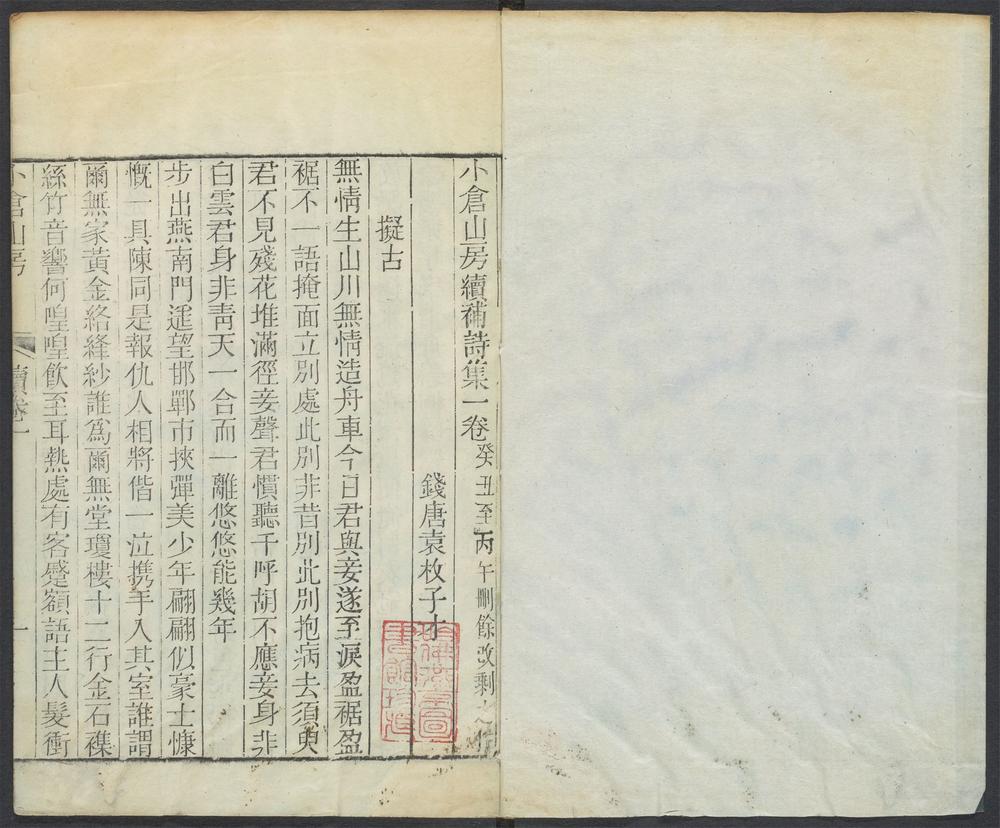 小倉山房續補詩集一卷癸丑至丙午刪餘改剩之作
錢唐袁枚子才
擬古
無情生山川無情造舟車今日君與妾遂至淚盈裾盈
裾不一語掩面立別處此別非昔別此別抱病去須臾
君不見殘花堆滿徑妾聲君慣聽千呼胡不應妾身非
白雲君身非靑天一合而一離悠悠能幾年
步出燕南門遥望邯鄲市挾彈美少年翩翩似豪士慷
慨一具陳同是報仇人相將偕一泣携手入其室誰謂
爾無家黃金絡絳紗誰爲爾無堂瓊樓十二行金石襍
絲竹音響何喤喤飲至耳熱處有客蹙額語主人髮衝
小倉山房 續卷一 一